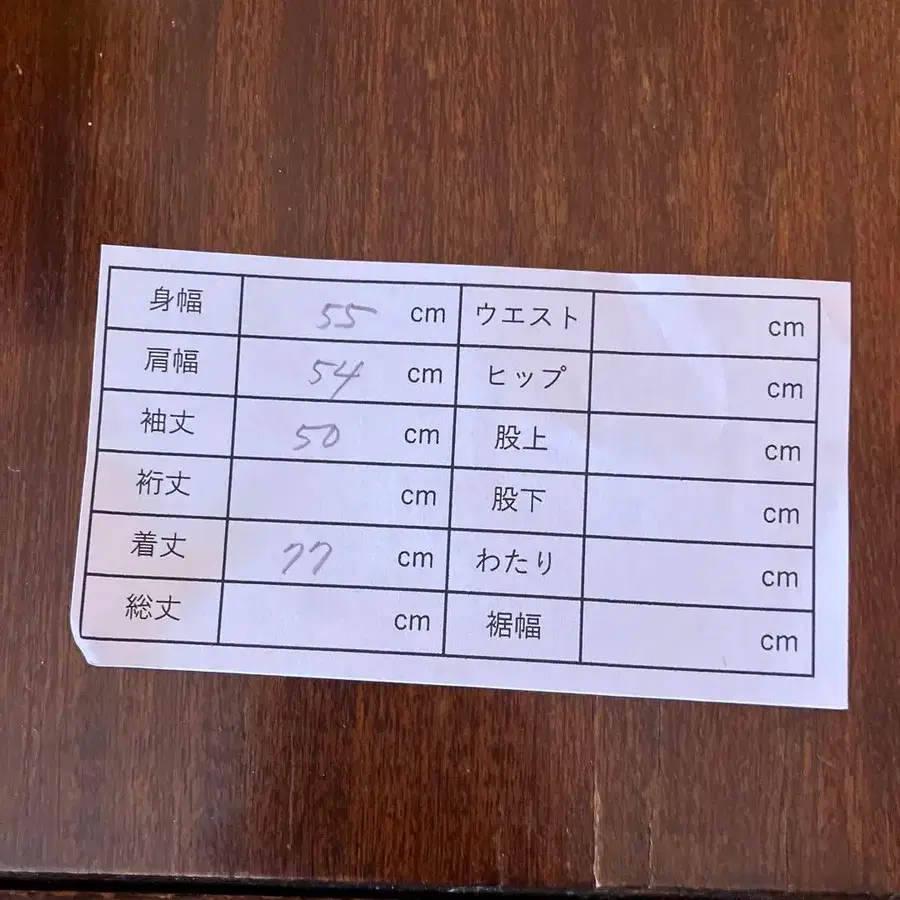 身幅 55 cm ウエスト cm
肩幅 54 cm ヒップ cm
袖丈 50 cm 股上 cm
裄丈 cm 股下 cm
着丈 77 cm わたり cm
総丈 cm 裾幅 cm